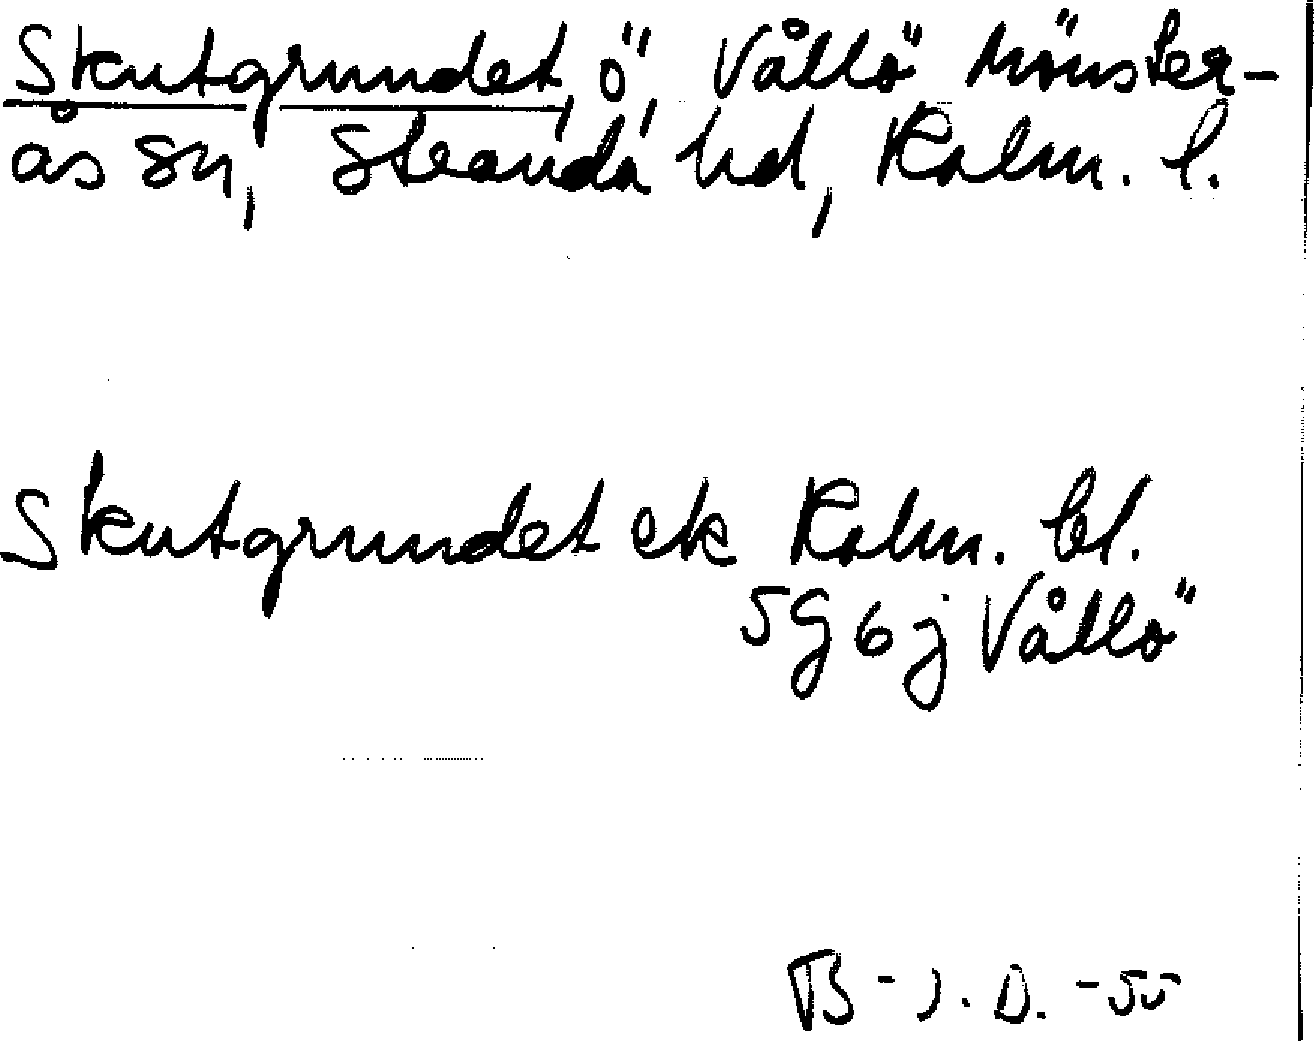 Skutgrundet, ö, Vållö Mönster-
ås sn, Stranda hd, Kalm. l.
Skutgrundet ek Kalm. bl.
5G6j Vållö
B-J.D. -55